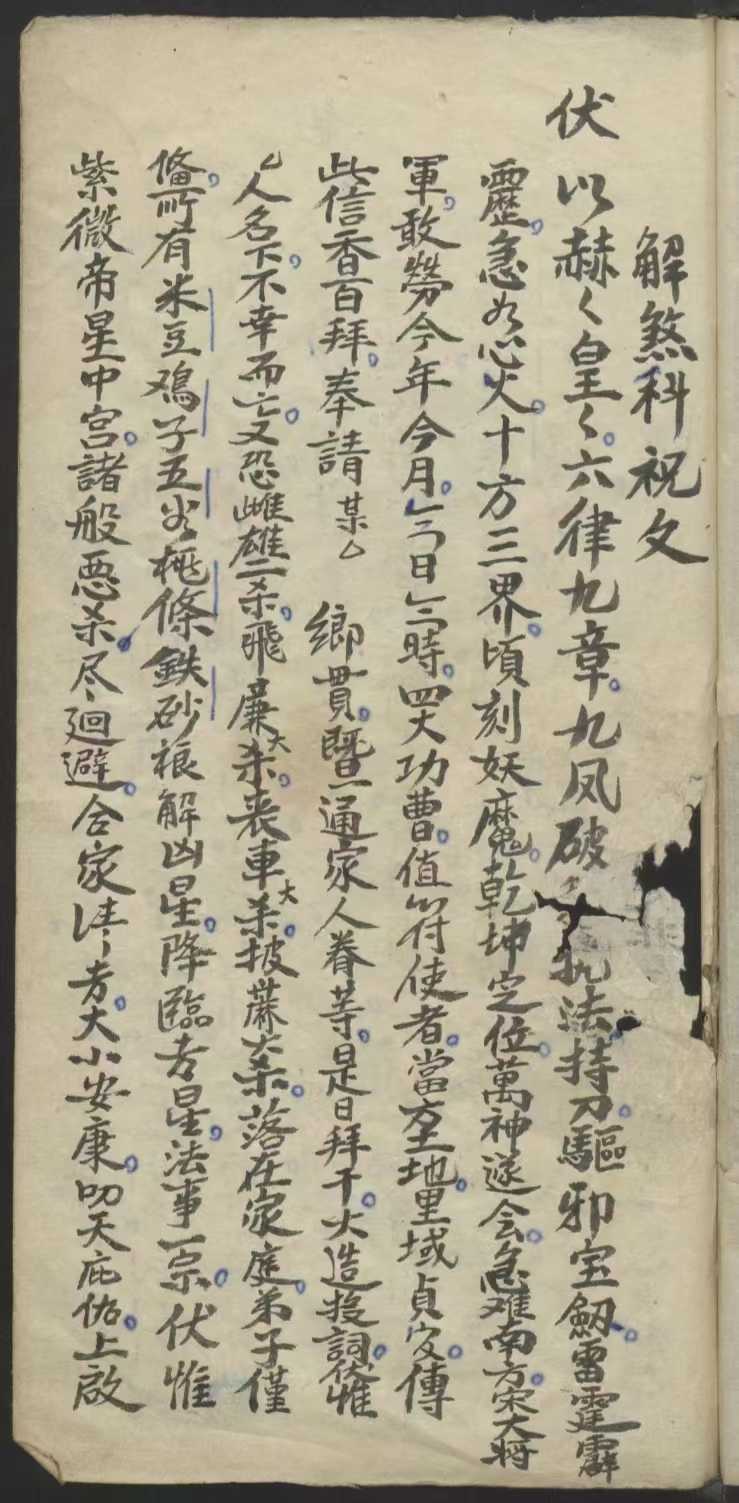 解煞科祝文
伏以赫〻皇〻六律九章九凤破 执法持刀驅邪宝劔雷霆霹
靂急如心火十方三界頃刻妖魔乾坤定位萬神遂会急难南方宋大将
軍敢勞今年今月今日今時四大功曹值符付使者當坐地里域貞官傳
此信香百拜奉請某厶 鄉貫暨通家人眷等是日拜干火造投詞伏惟
厶人名下不幸而亡又恐雌雄二杀飛廉大杀丧車大杀披蔴大杀落在家庭弟子僅
偹所有米豆鸡子五谷桃條鉄砂禳解凶星降臨吉星法事一宗伏惟
紫微帝星中宫諸般恶杀尽廻避合家清吉大小安康叨天庇佑上啟